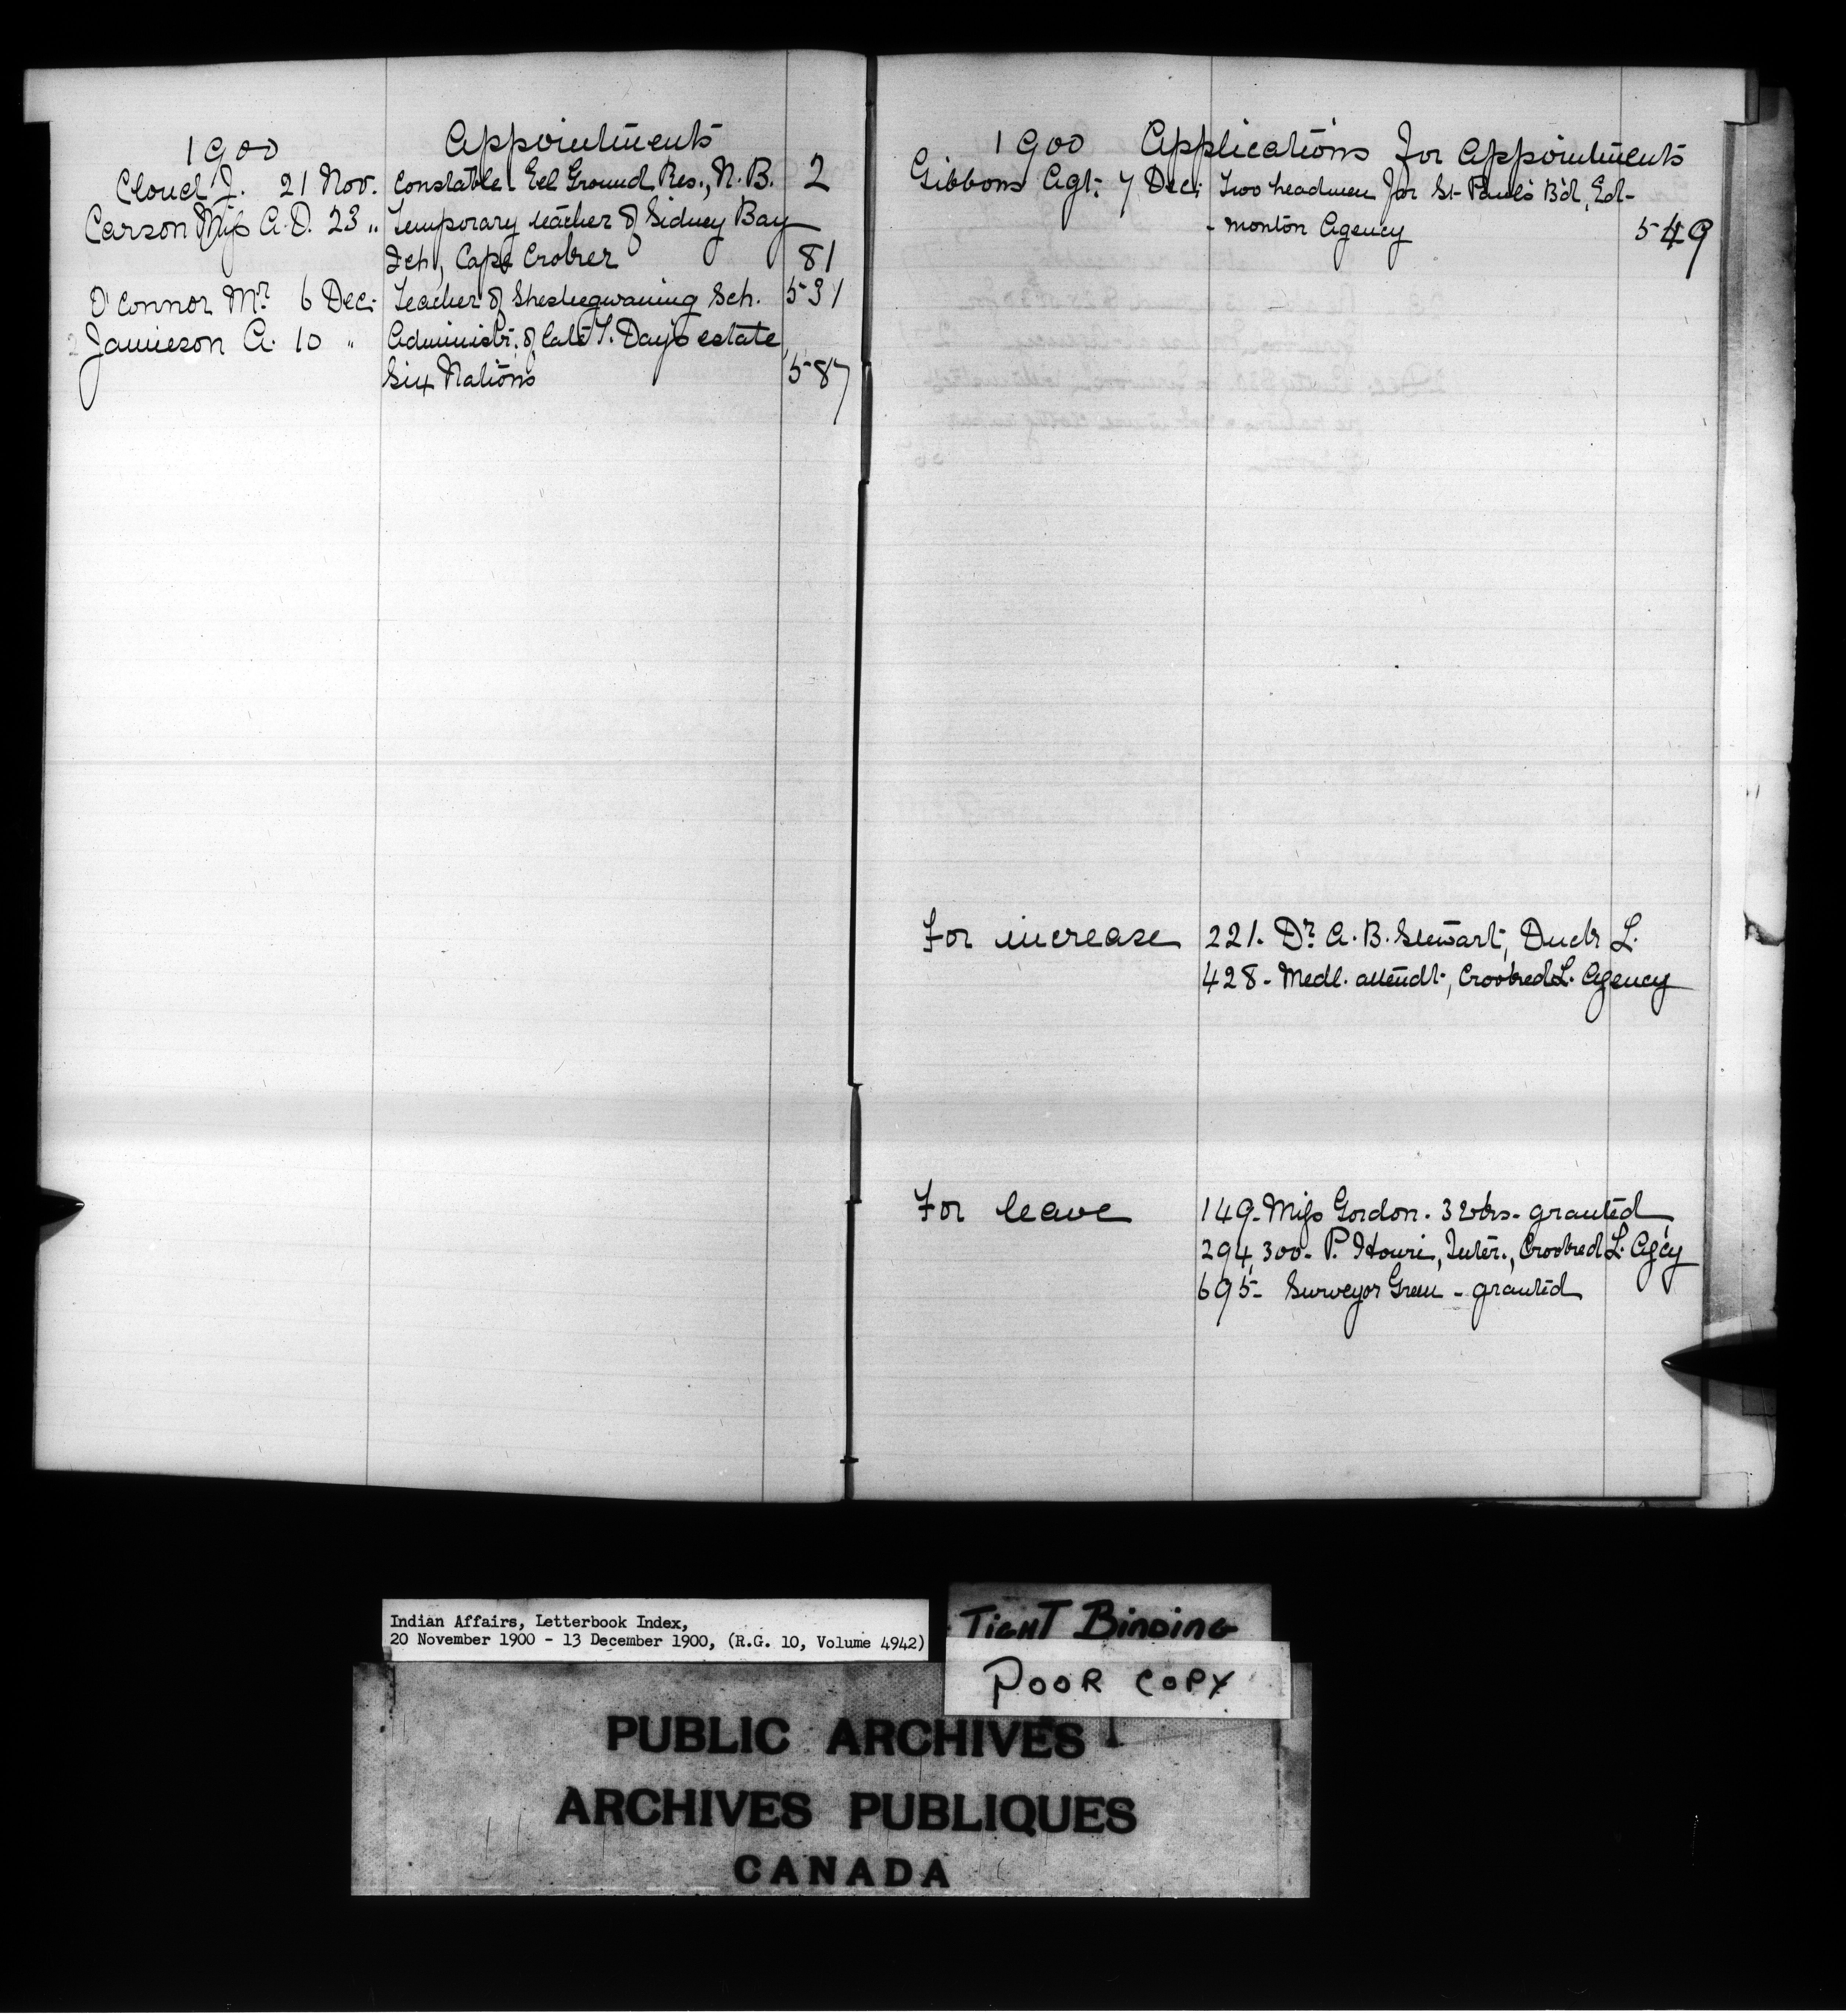 1900 Appointments
Cloud J. 21 Nov. Constable Eel Ground Res., N.B. 2
Carson Miss A.D. 23 " Temporary teacher of Sidney Bay
Sch, Cape Croker 81
O'Connor Mr. 6 Dec. Teacher of Sheshegwaning Sch. 531
Jamieson A. 10 " Administr. of late T. Day's estate
Six Nations 587
1900 Applications for appointments
Gibbons Agt. 7 Dec. Two headmen for St Paul's B'd, Ed-
-monton Agency 549
For increase 221. Dr. A.B. Stewart, Duck L.
428 - Medl. attendt., Crooked L. Agency
For leave 149 - Miss Gordon. 3 wks - granted
294, 300 - P. Houri, Inter., Crooked L. Agcy
695 - Surveyor Green - granted
Indian Affairs, Letterbook Index,
20 November 1900 - 13 December 1900, (R.G. 10, Volume 4942)
TIGHT BINDING
POOR COPY
PUBLIC ARCHIVES
ARCHIVES PUBLIQUES
CANADA